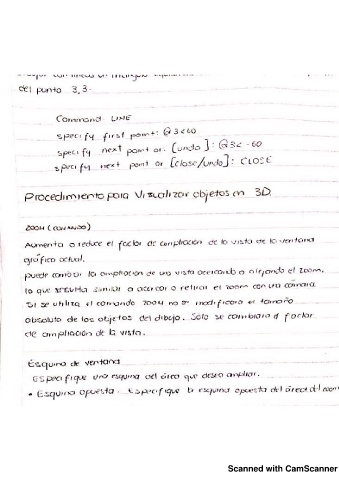 Dibujar con lineas un triangulo equilatero
del punto 3,3.
Command: LINE
specify first point: @3<60
specify next point or [undo]: @3<-60
specify next point or [close/undo]: CLOSE
Procedimiento para Visualizar objetos en 3D.
ZOOM (COMANDO)
Aumenta o reduce el factor de ampliación de la vista de la ventana
gráfica actual.
puede cambiar la ampliación de una vista acercando o alejando el zoom,
lo que resulta similar a acercar o retirar el zoom con una cámara.
Si se utiliza el comando ZOOM no se modificara el tamaño
absoluto de los objetos del dibujo. Solo se cambiara el factor
de ampliación de la vista.
Esquina de ventana
Especifique una esquina del área que desea ampliar.
• Esquina opuesta. Especifique la esquina opuesta del área del zoom
Scanned with CamScanner